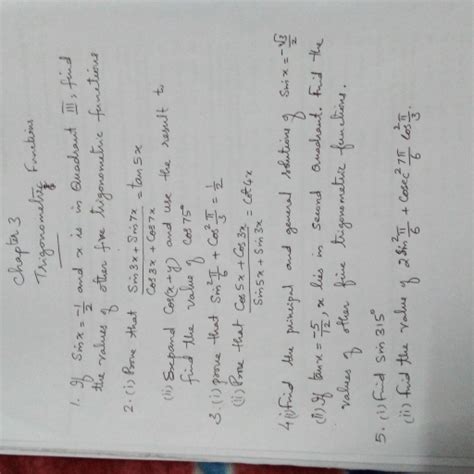 Chapter 3
Trigonometric Functions
1. If Sin x = -1/2 and x is in Quadrant III, find
the values of other five trigonometric functions
2. (i) Prove that (Sin3x + Sin7x)/(Cos3x + Cos7x) = tan5x
(ii) Expand Cos(x+y) and use the result to
find the value of Cos75°
3. (i) prove that Sin²π/6 + Cos²π/3 = 1/2
(ii) Prove that (Cos5x + Cos3x)/(Sin5x + Sin3x) = Cot4x
4 (i) Find the principal and general solutions of Sinx = -√3/2
(ii) If tanx = -5/12, x lies in second Quadrant. Find the
values of other five trigonometric functions.
5. (i) Find Sin 315°
(ii) Find the value of 2Sin²π/6 + Cosec²7π/6 Cos²π/3.